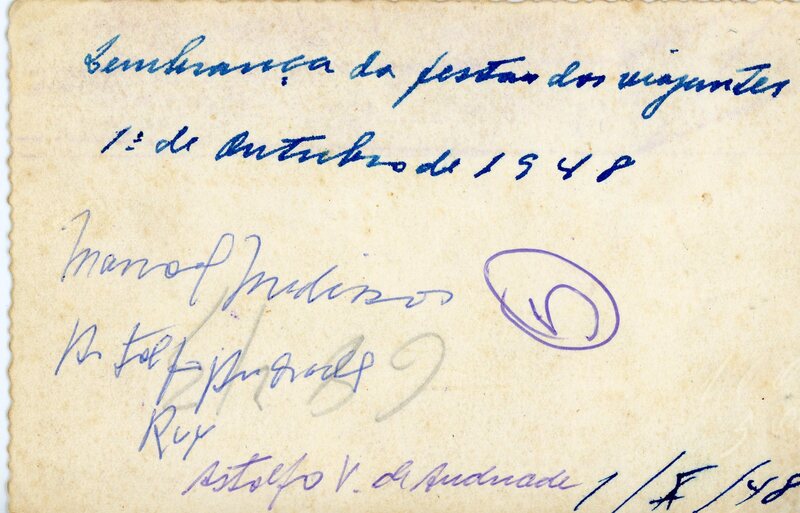 Lembrança da festa dos viajantes
1º de Outubro de 1948
Manoel Medeiros
5
Astolfo Andrade
Ruy
Astolfo V. de Andrade 1/X/48